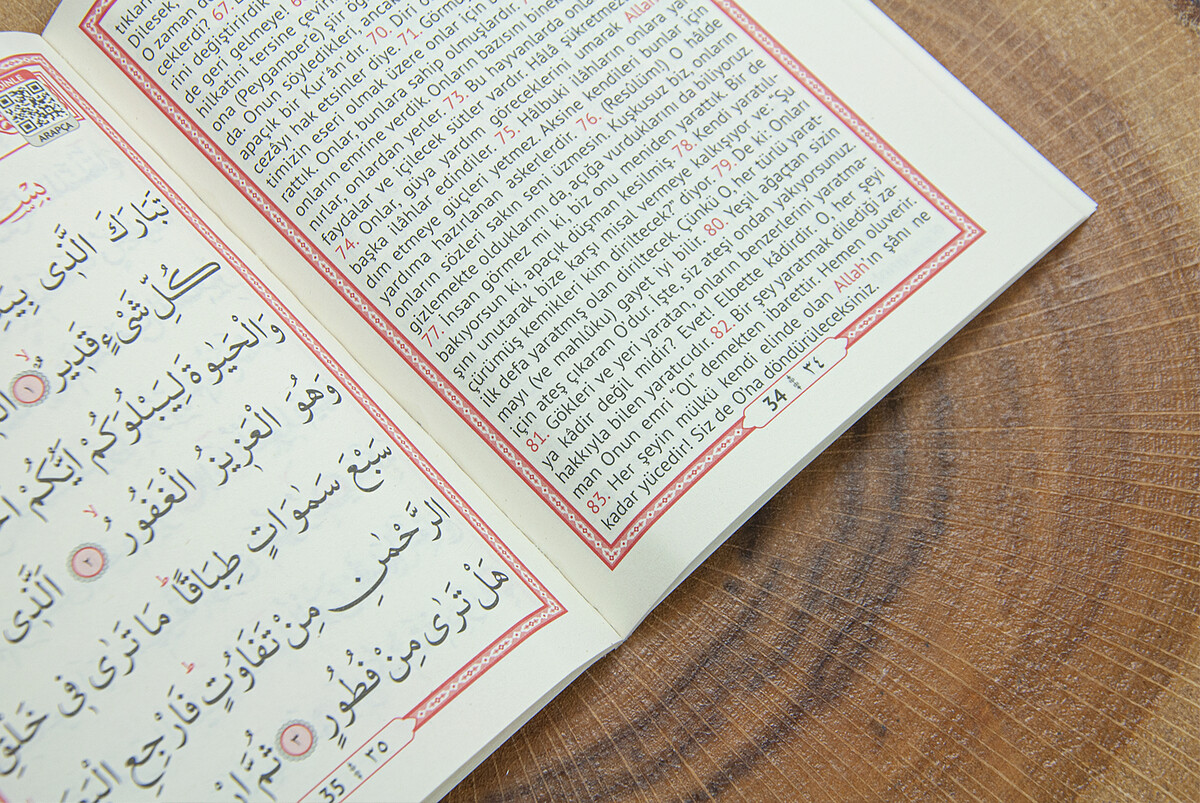 tıklan
Dilesek,
O zaman
çeklerdi? 67.
rini değiştirirdik
de geri gelmeye
hilkatini tersine çevir
ona (Peygambere) şiir öğ
da. Onun söyledikleri, ancak
apaçık bir Kur'ân'dır. 70. Diri o
cezâyı hak etsinler diye. 71. Görme
timizin eseri olmak üzere onlar için
rattık. Onlar, bunlara sahip olmuşlardır.
onların emrine verdik. Onların bazısını binek
nırlar, onlardan yerler. 73. Bu hayvanlarda onla
faydalar ve içilecek sütler vardır. Hâlâ şükretmez
74. Onlar, gûya yardım göreceklerini umarak Allah
başka ilâhlar edindiler. 75. Hâlbuki ilâhların onlara yar
dım etmeye güçleri yetmez. Aksine kendileri bunlar için
yardıma hazırlanan askerlerdir. 76. (Resûlüm!) O hâlde
onların sözleri sakın seni üzmesin. Kuşkusuz biz onların
gizlemekte olduklarını da, açığa vurduklarını da biliyoruz.
77. İnsan görmez mi ki, biz onu meniden yarattık. Bir de
bakıyorsun ki, apaçık düşman kesilmiş. 78. Kendi yaratılı-
şını unutarak bize karşı misal vermeye kalkışıyor ve: “Şu
çürümüş kemikleri kim diriltecek?” diyor. 79. De ki: Onları
ilk defa yaratmış olan diriltecek. Çünkü O, her türlü yarat-
mayı (ve mahlûku) gayet iyi bilir. 80. Yeşil ağaçtan sizin
için ateş çıkaran O'dur. İşte, siz ateşi ondan yakıyorsunuz.
81. Gökleri ve yeri yaratan, onların benzerlerini yaratma-
ya kâdir değil midir? Evet! Elbette kâdirdir. O, her şeyi
hakkıyla bilen yaratıcıdır. 82. Bir şey yaratmak dilediği za-
man Onun emri “Ol” demekten ibarettir. Hemen oluverir.
83. Her şeyin mülkü kendi elinde olan Allah'ın şânı ne
kadar yücedir! Siz de O'na döndürüleceksiniz.
34 ٣٤
DİNLE
ARAPÇA
تَبَارَكَ الَّذٖى بِيَدِ
كُلِّ شَىْءٍ قَدٖيرٌ ١
وَالْحَيٰوةَ لِيَبْلُوَكُمْ اَيُّكُمْ
وَهُوَ الْعَزٖيزُ الْغَفُورُ ٢ اَلَّذٖى
سَبْعَ سَمٰوَاتٍ طِبَاقًا مَا تَرٰى فٖى خَلْقِ
الرَّحْمٰنِ مِنْ تَفَاوُتٍ فَارْجِعِ الْبَصَ
هَلْ تَرٰى مِنْ فُطُورٍ ٣ ثُمَّ ارْ
35 ٣٥